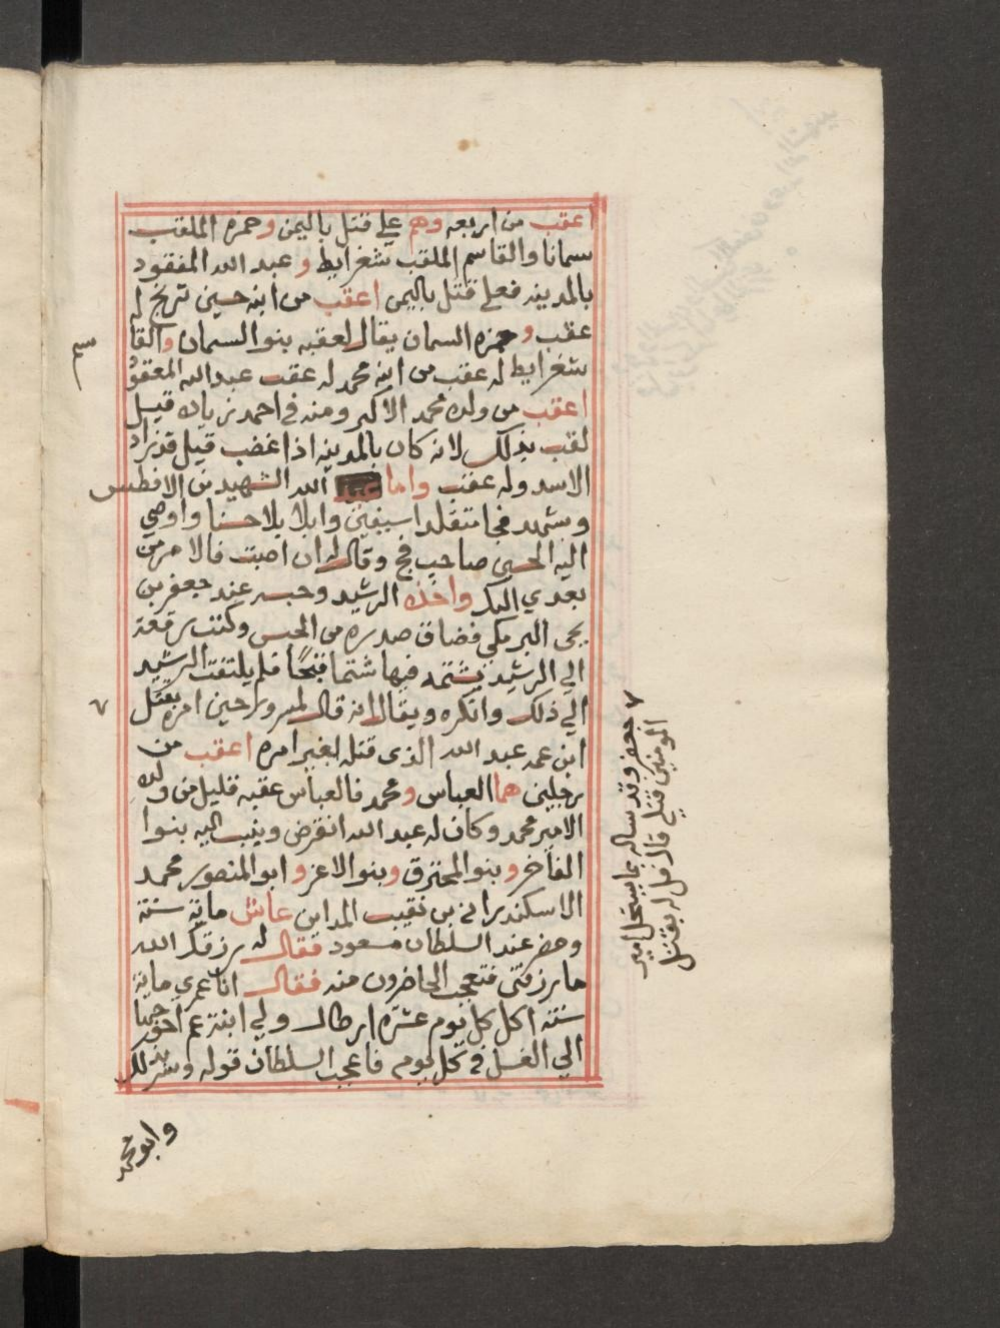 اعقب من اربعه وهم علي قتل باليمن وحمزه الملقب
سمانا والقاسم الملقب شغرابط وعبد الله المفقود
بالمدينه فعلي قتل باليمن اعقب من ابنه حسين تريخ له
عقب وحمزه السمان يقال لعقبه بنو السمان والقا
سم
شغرابط له عقب من ابنه محمد له عقب عبد الله المعقود
اعقب من ولده محمد الاكبر ومنه في احمد زياده قيل
لقب بذلك لانه كان بالمدينه اذا غضب قيل قد زاد
الاسد وله عقب واما عبد الله الشهيد بن الافطس
وشهد فخا متقلدا سيفين وابلا بلا حسنا واوصي
اليه الحسين صاحب فخ وقال له ان اصبت فالامر من
بعدي اليك واخذه الرشيد وحبسه عند جعفر بن
يحي البرمكي فضاق صدره من الحبس وكتب رقعة
الي الرشيد يشتمه فيها شتما قبيحًا فلم يلتفت الرشيد
الي ذلك وانكره ويقال انه قال لمسرور حين امره بقتل ٧
٧ جعفر وقد ساله بما يستحل امير
المومنين قتلي قال قل له بقتل
ابن عمه عبد الله الذى قتله بغير امره اعقب من
رجلين هما العباس ومحمد فالعباس عقبه قليل من ولده
الامير محمد وكان له عبد الله انقرض وينسب اليه بنوا
الفاخر وبنو المحترق وبنو الاعز وابو المنصور محمد
الاسكندراني بن نقيب المداين عاش ماية سنة
وحضر عند السلطان مسعود فقال له رزقك الله
ما رزقني فتعجب الحاضرون منه فقال انا عمري ماية
سنة اكل كل يوم عشرة ارطال ولي ابنة عم احوجها
الي الغسل في كل يوم فاعجب السلطان قوله وسر بذلك
وابو محمد